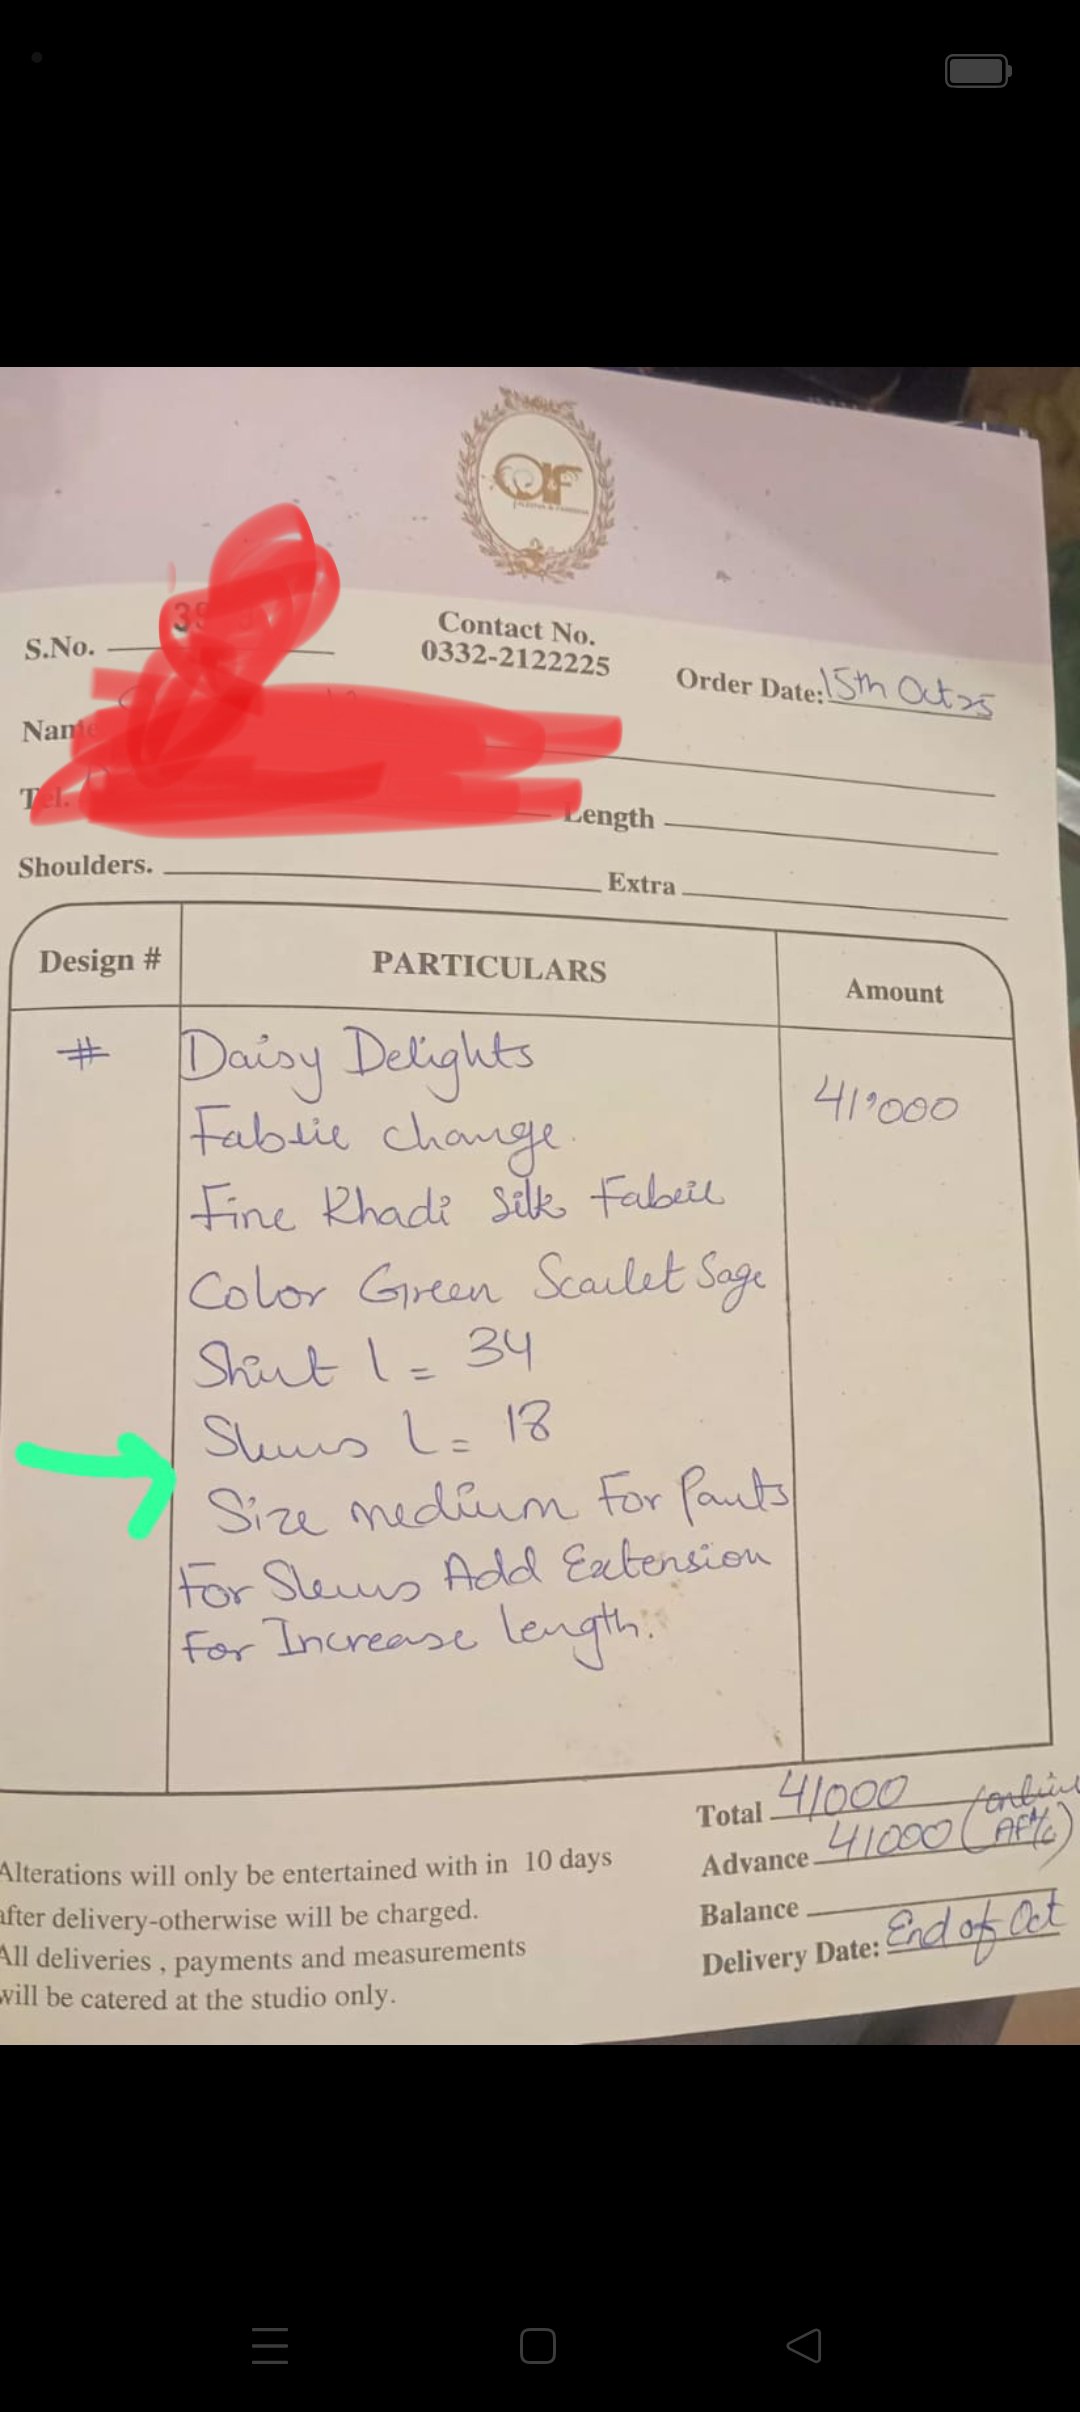 S.No.
Contact No.
0332-2122225
Order Date: 15th Oct 25
Name
Tel.
Length
Shoulders.
Extra
Design #
PARTICULARS
Amount
#
Daisy Delights
41,000
Fabric change.
Fine Khadi Silk Fabric
Color Green Scarlet Sage
Shirt l = 34
Sleeves l = 18
Size medium For Pants
For Sleeves Add Extension
For Increase length.
Total 41000
Advance 41000 (online
Balance
Delivery Date: End of Oct
Alterations will only be entertained with in 10 days
after delivery-otherwise will be charged.
All deliveries , payments and measurements
will be catered at the studio only.